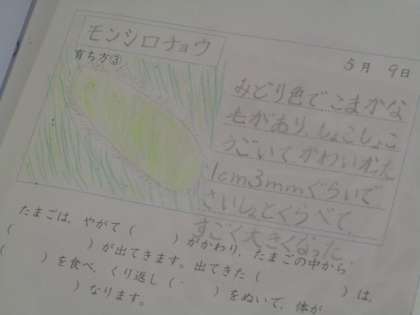 モンシロチョウ
育ち方③
5月 9日
みどり色でこまかな
毛があり、しょこしょこ
うごいてかわいかった
1cm3mmぐらいで
さいしょとくらべて、
すごく大きくなった。
たまごは、やがて（　　）がかわり、たまごの中から
（　　）が出てきます。出てきた（　　）は、
（　　）を食べ、くり返し（　　）をぬいで、体が
（　　）なります。